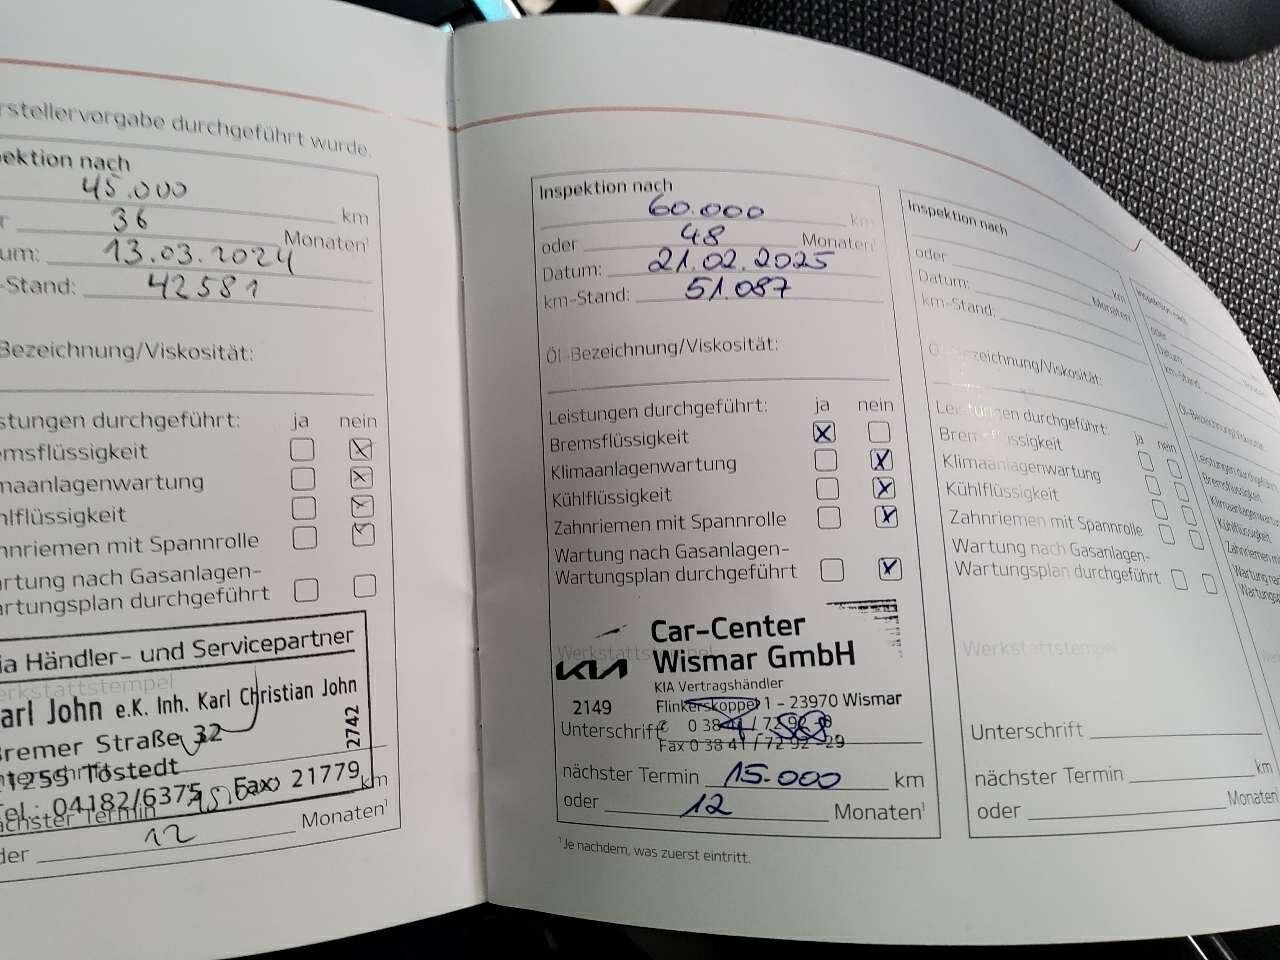 rstellervorgabe durchgeführt wurde.
ektion nach
45.000 km
r 36 Monaten¹
um: 13.03.2024
-Stand: 42581
Bezeichnung/Viskosität:
stungen durchgeführt: ja nein
emsflüssigkeit
maanlagenwartung
hlflüssigkeit
hnriemen mit Spannrolle
artung nach Gasanlagen-
artungsplan durchgeführt
ia Händler- und Servicepartner
erkstattstempel
arl John e.K. Inh. Karl Christian John
Bremer Straße 32
21255 Tostedt
2742
Tel.: 04182/6375 Fax 21779
km
ächster Termin
der 12 Monaten¹
Inspektion nach
60.000 km
oder 48 Monaten¹
Datum: 21.02.2025
km-Stand: 51.087
Öl-Bezeichnung/Viskosität:
Leistungen durchgeführt: ja nein
Bremsflüssigkeit X
Klimaanlagenwartung X
Kühlflüssigkeit X
Zahnriemen mit Spannrolle X
Wartung nach Gasanlagen-
Wartungsplan durchgeführt X
Werkstattstempel
KIA Car-Center
Wismar GmbH
KIA Vertragshändler
2149 Flinkerskoppel 1 - 23970 Wismar
Unterschrift
Fax 0 38 41 / 72 92 - 29
nächster Termin 15.000 km
oder 12 Monaten¹
¹Je nachdem, was zuerst eintritt.
Inspektion nach
km
oder Monaten¹
Datum:
km-Stand:
Öl-Bezeichnung/Viskosität:
Leistungen durchgeführt: ja nein
Bremsflüssigkeit
Klimaanlagenwartung
Kühlflüssigkeit
Zahnriemen mit Spannrolle
Wartung nach Gasanlagen-
Wartungsplan durchgeführt
Werkstattstempel
Unterschrift
nächster Termin km
oder Monaten¹
Inspektion nach
oder
Datum:
km-Stand:
Öl-Bezeichnung/Viskosität:
Leistungen durchgeführt
Bremsflüssigkeit
Klimaanlagenwartu
Kühlflüssigkeit
Zahnriemen mi
Wartung nac
Wartungsp